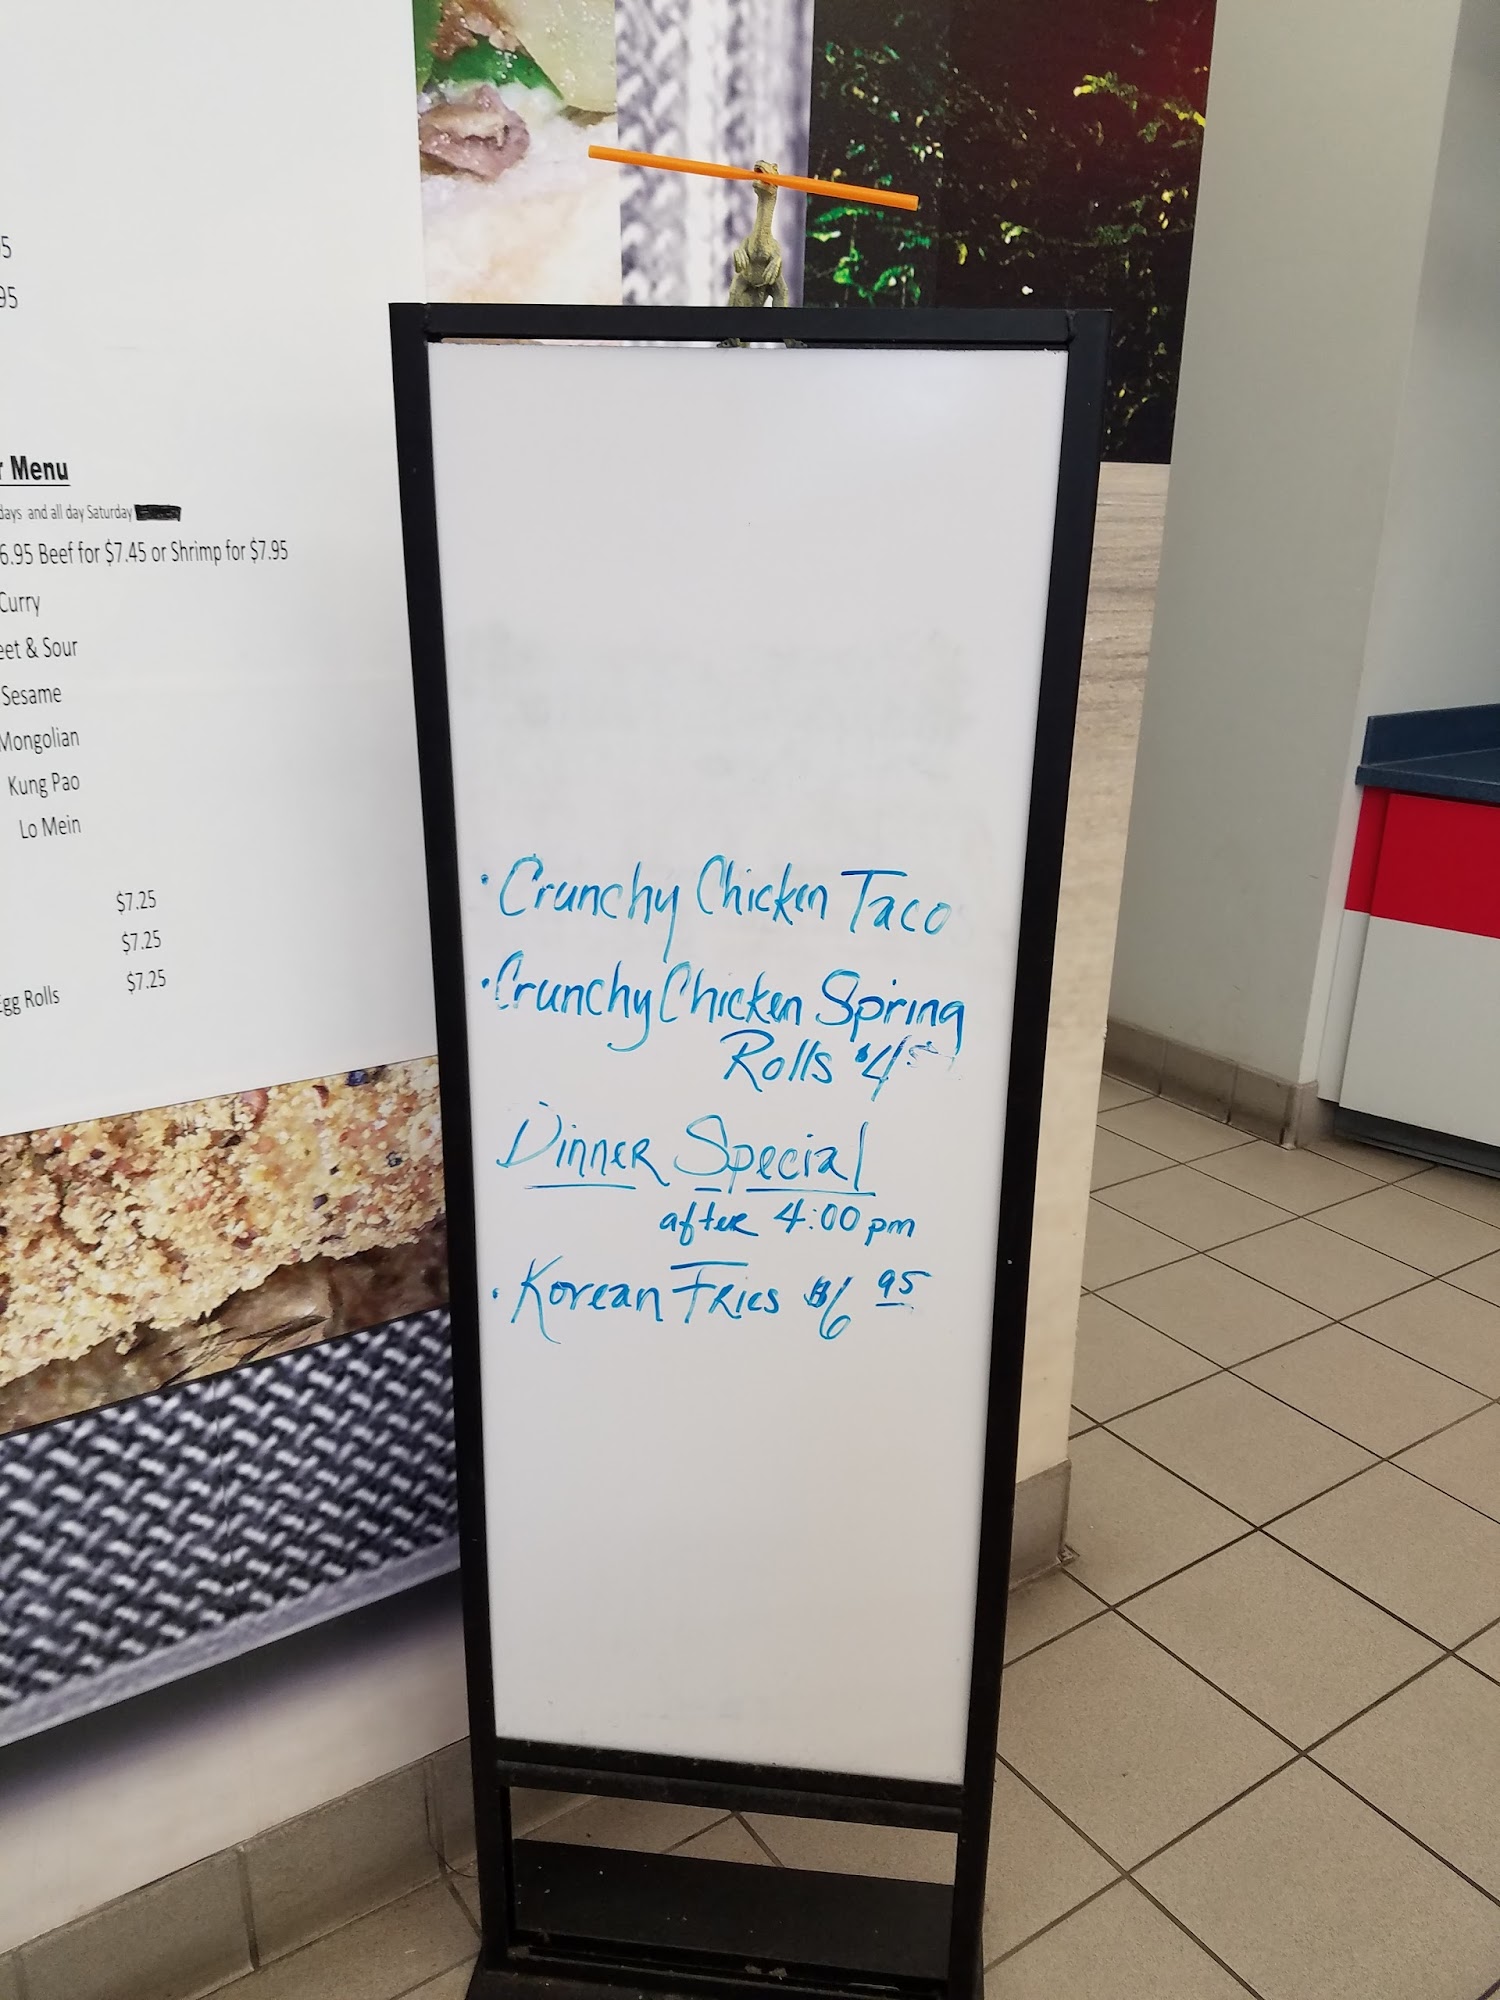 5
95
r Menu
days and all day Saturday
6.95 Beef for $7.45 or Shrimp for $7.95
Curry
eet & Sour
Sesame
Mongolian
Kung Pao
Lo Mein
$7.25
$7.25
Egg Rolls $7.25
· Crunchy Chicken Taco
· Crunchy Chicken Spring
Rolls $4
Dinner Special
after 4:00 pm
· Korean Fries $6 95